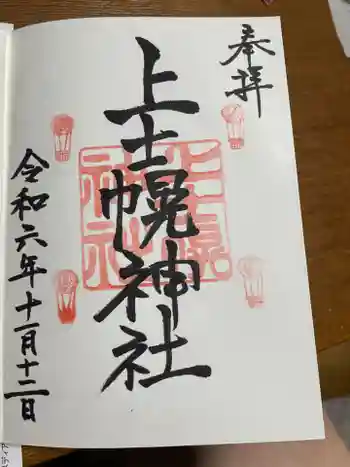 奉拝
上士幌神社
令和六年十一月十二日